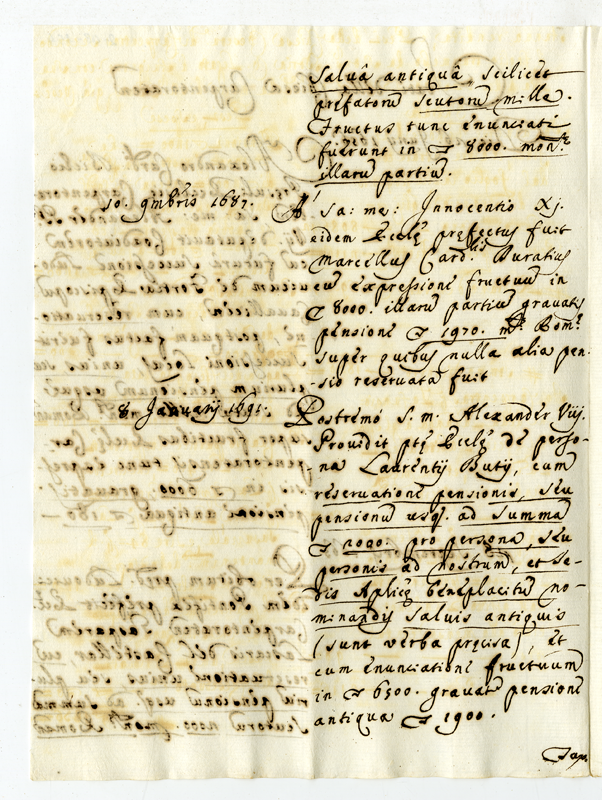 Salvâ antiquâ, scilicet
prefatorũ scutorũ mille.
Fructus tunc enunciati
fuerunt in 8000. monte
illarũ partiũ.
10. 9mbris 1687. A sa: me: Innocentio XJ.
eidem Eccle prefectus fuit
Marcellus Cardlis Duratius
cũ expressione fructuũ in
8000. illarũ partiũ gravatis
pensione 1970. mte Romte
super quibus nulla alia pen-
-sio reservata fuit
8 Januarij 1691. Postremò S. m. Alexander Viij.
Providit pte Eccle de perso-
na Laurentij Butij, cum
reservatione pensionis, seu
pensionũ usq. ad summã
2000. pro persona, seu
personis ad nostrum, et Se-
dis Aplice beneplacitũ no-
minandis salvis antiquis
(sunt verba precisa), et
cum enunciatione fructuum
in 6500. gravate pensione
antiqua 1900.